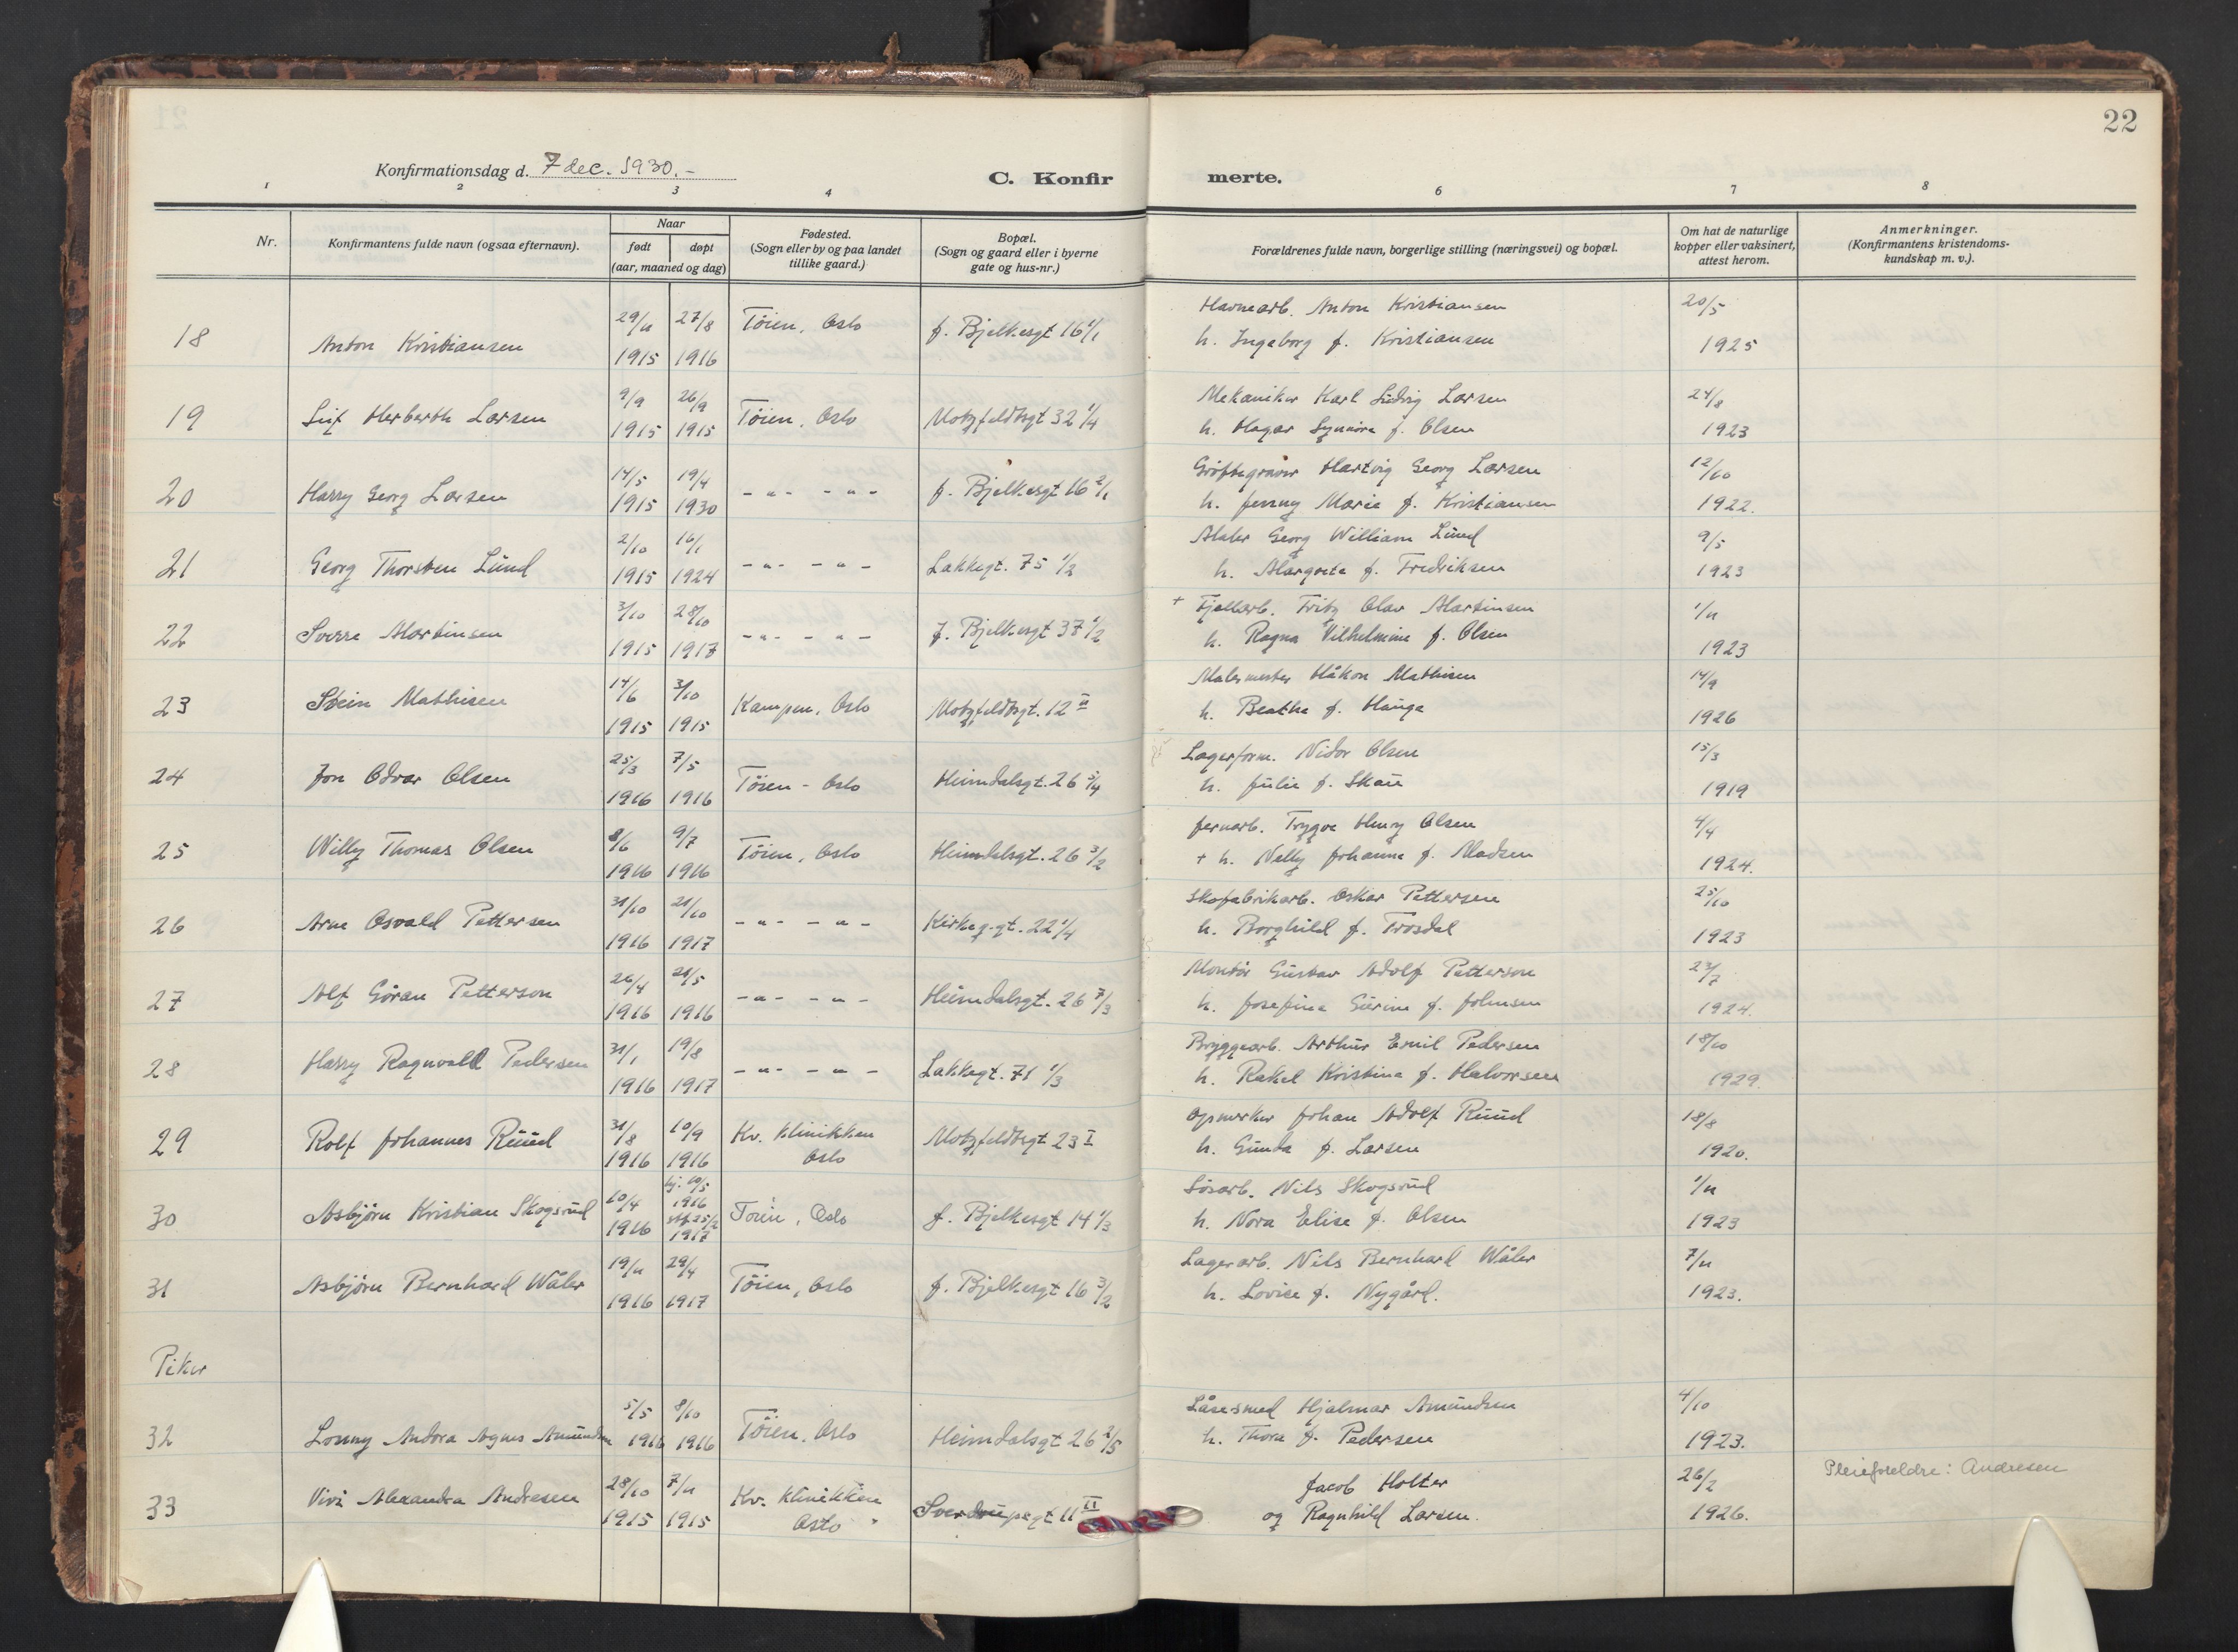 22
Konfirmationsdag d. 7 dec. 1930. -
C. Konfir merte.
1 2 3 4 6 7 8
Nr.
Konfirmantens fulde navn (ogsaa efternavn).
Naar
født døpt
(aar, maaned og dag)
Fødested.
(Sogn eller by og paa landet
tillike gaard.)
Bopæl.
(Sogn og gaard eller i byerne
gate og hus-nr.)
Forældrenes fulde navn, borgerlige stilling (næringsvei) og bopæl.
Om hat de naturlige
kopper eller vaksinert,
attest herom.
Anmerkninger.
(Konfirmantens kristendoms-
kundskap m. v.).
29/11 27/8 Töien, Oslo f. Bjelkesgt 16 1/1 Havnearb. Anton Kristiansen 20/5
18 Anton Kristiansen 1915 1916 h. Ingeborg f. Kristiansen 1925
9/9 26/9 Mekaniker Karl Ludvig Larsen 24/8
19 Leif Herberth Larsen 1915 1915 Töien, Oslo Motzfeldtsgt 32 1/4 h. Hagar Synnöve f. Olsen 1923
14/5 19/4 Gröftegraver Hartvig Georg Larsen 12/10
20 Harry Georg Larsen 1915 1930 - " - - " - f. Bjelkesgt 16 2/1 h. Jenny Marie f. Kristiansen 1922.
2/10 16/1 Maler Georg William Lund 9/5
21 Georg Thorsten Lund 1915 1924 - " - - " - Lakkegt. 75 1/2 h. Margrete f. Fredriksen 1923
3/10 28/10 + Fjellarb. Fritz Olav Martinsen 1/11
22 Sverre Martinsen 1915 1917 - " - - " - f. Bjelkesgt 37 1/2 h. Ragna Vilhelmine f. Olsen 1923
14/6 3/10 Malermester Håkon Mathisen 14/9
23 Stein Mathisen 1915 1915 Kampen, Oslo Motzfeldtsgt. 12 II h. Beathe f. Hauge 1926
25/3 7/5 Lagerform. Nidor Olsen 15/3
24 Jon Odvar Olsen 1916 1916 Töien - Oslo Heimdalsgt. 26 5/4 h. Julie f. Skau 1919
8/6 9/7 Jernarb. Trygve Henry Olsen 4/4
25 Willy Thomas Olsen 1916 1916 Töien, Oslo Heimdalsgt. 26 3/2 + h. Nelly Johanne f. Madsen 1924.
31/10 21/10 Skofabrikarb. Oskar Pettersen 25/10
26 Arne Osvald Pettersen 1916 1917 - " - - " - Kirkeg.gt. 22 1/4 h. Borghild f. Trosdal 1923
26/4 21/5 Montör Gustav Adolf Petterson 23/7
27 Alf Göran Petterson 1916 1916 - " - - " - Heimdalsgt. 26 7/3 h. Josefine Gurine f. Johnsen 1924.
31/1 19/8 Bryggearb. Arthur Emil Pedersen 18/10
28 Harry Ragnvald Pedersen 1916 1917 - " - - " - Lakkegt. 71 1/3 h. Rakel Kristine f. Halvorsen 1929.
31/8 10/9 Kv. klinikken Opmerker Johan Adolf Ruud 18/8
29 Rolf Johannes Ruud 1916 1916 Oslo Motzfeldtsgt 23 I h. Gunda f. Larsen 1920.
10/4 hj. 10/5 1916 Lösarb. Nils Skogsrud 1/11
30 Asbjörn Kristian Skogsrud 1916 stf 25/2 1917 Töien, Oslo f. Bjelkesgt 14 1/3 h. Nora Elise f. Olsen 1923
19/11 29/4 Lagerarb. Nils Bernhard Wåler 7/11
31 Asbjörn Bernhard Wåler 1916 1917 Töien, Oslo f. Bjelkesgt 16 3/2 h. Lovise f. Nygård. 1923.
Piker
5/5 8/10 Låsesmed Hjalmar Amundsen 4/10
32 Lonny Andora Agnes Amundsen 1916 1916 Töien, Oslo Heimdalsgt 26 2/5 h. Thora f. Pedersen 1923.
28/10 7/11 Kv. klinikken Jacob Holter 26/2 Pleieforeldre: Andresen
33 Vivi Alexandra Andresen 1915 1915 Oslo Sverdrupsgt 11 II og Ragnhild Larsen. 1926.